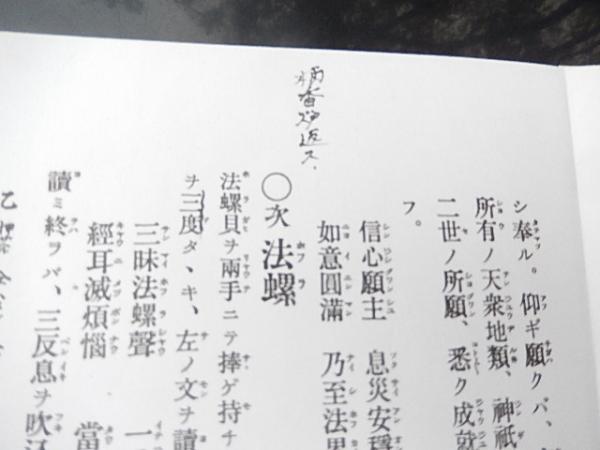 シ奉ル。仰ギ願クバ、
所有ノ天衆地類、神祇
二世ノ所願、悉ク成就
フ。
信心願主 息災安穩
如意圓滿 乃至法界
柄香炉返ス、
〇次法螺
法螺貝ヲ兩手ニテ捧ゲ持チ
ヲ三度タヽキ、左ノ文ヲ讀
三昧法螺聲 一
經耳滅煩惱 當
讀ミ終ラバ、三反息ヲ吹
乙